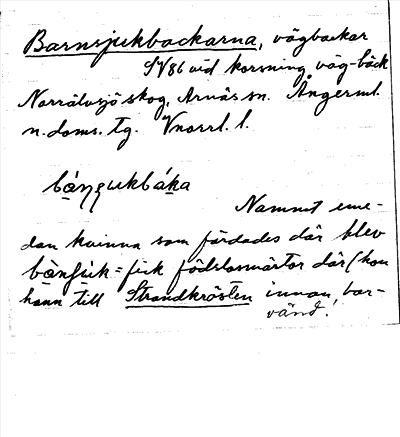 Barnsjukbackarna, vägbackar
SV86 vid korsning väg-bäck
Norrälvsjö skog, Arnäs sn. Ångerml.
n. doms. tg. Vnorrl. l.
Namnet eme-
dan kvinna som färdades där blev
= fick födslosmärtor där (hon
hann till Strandkrösten innan bar-